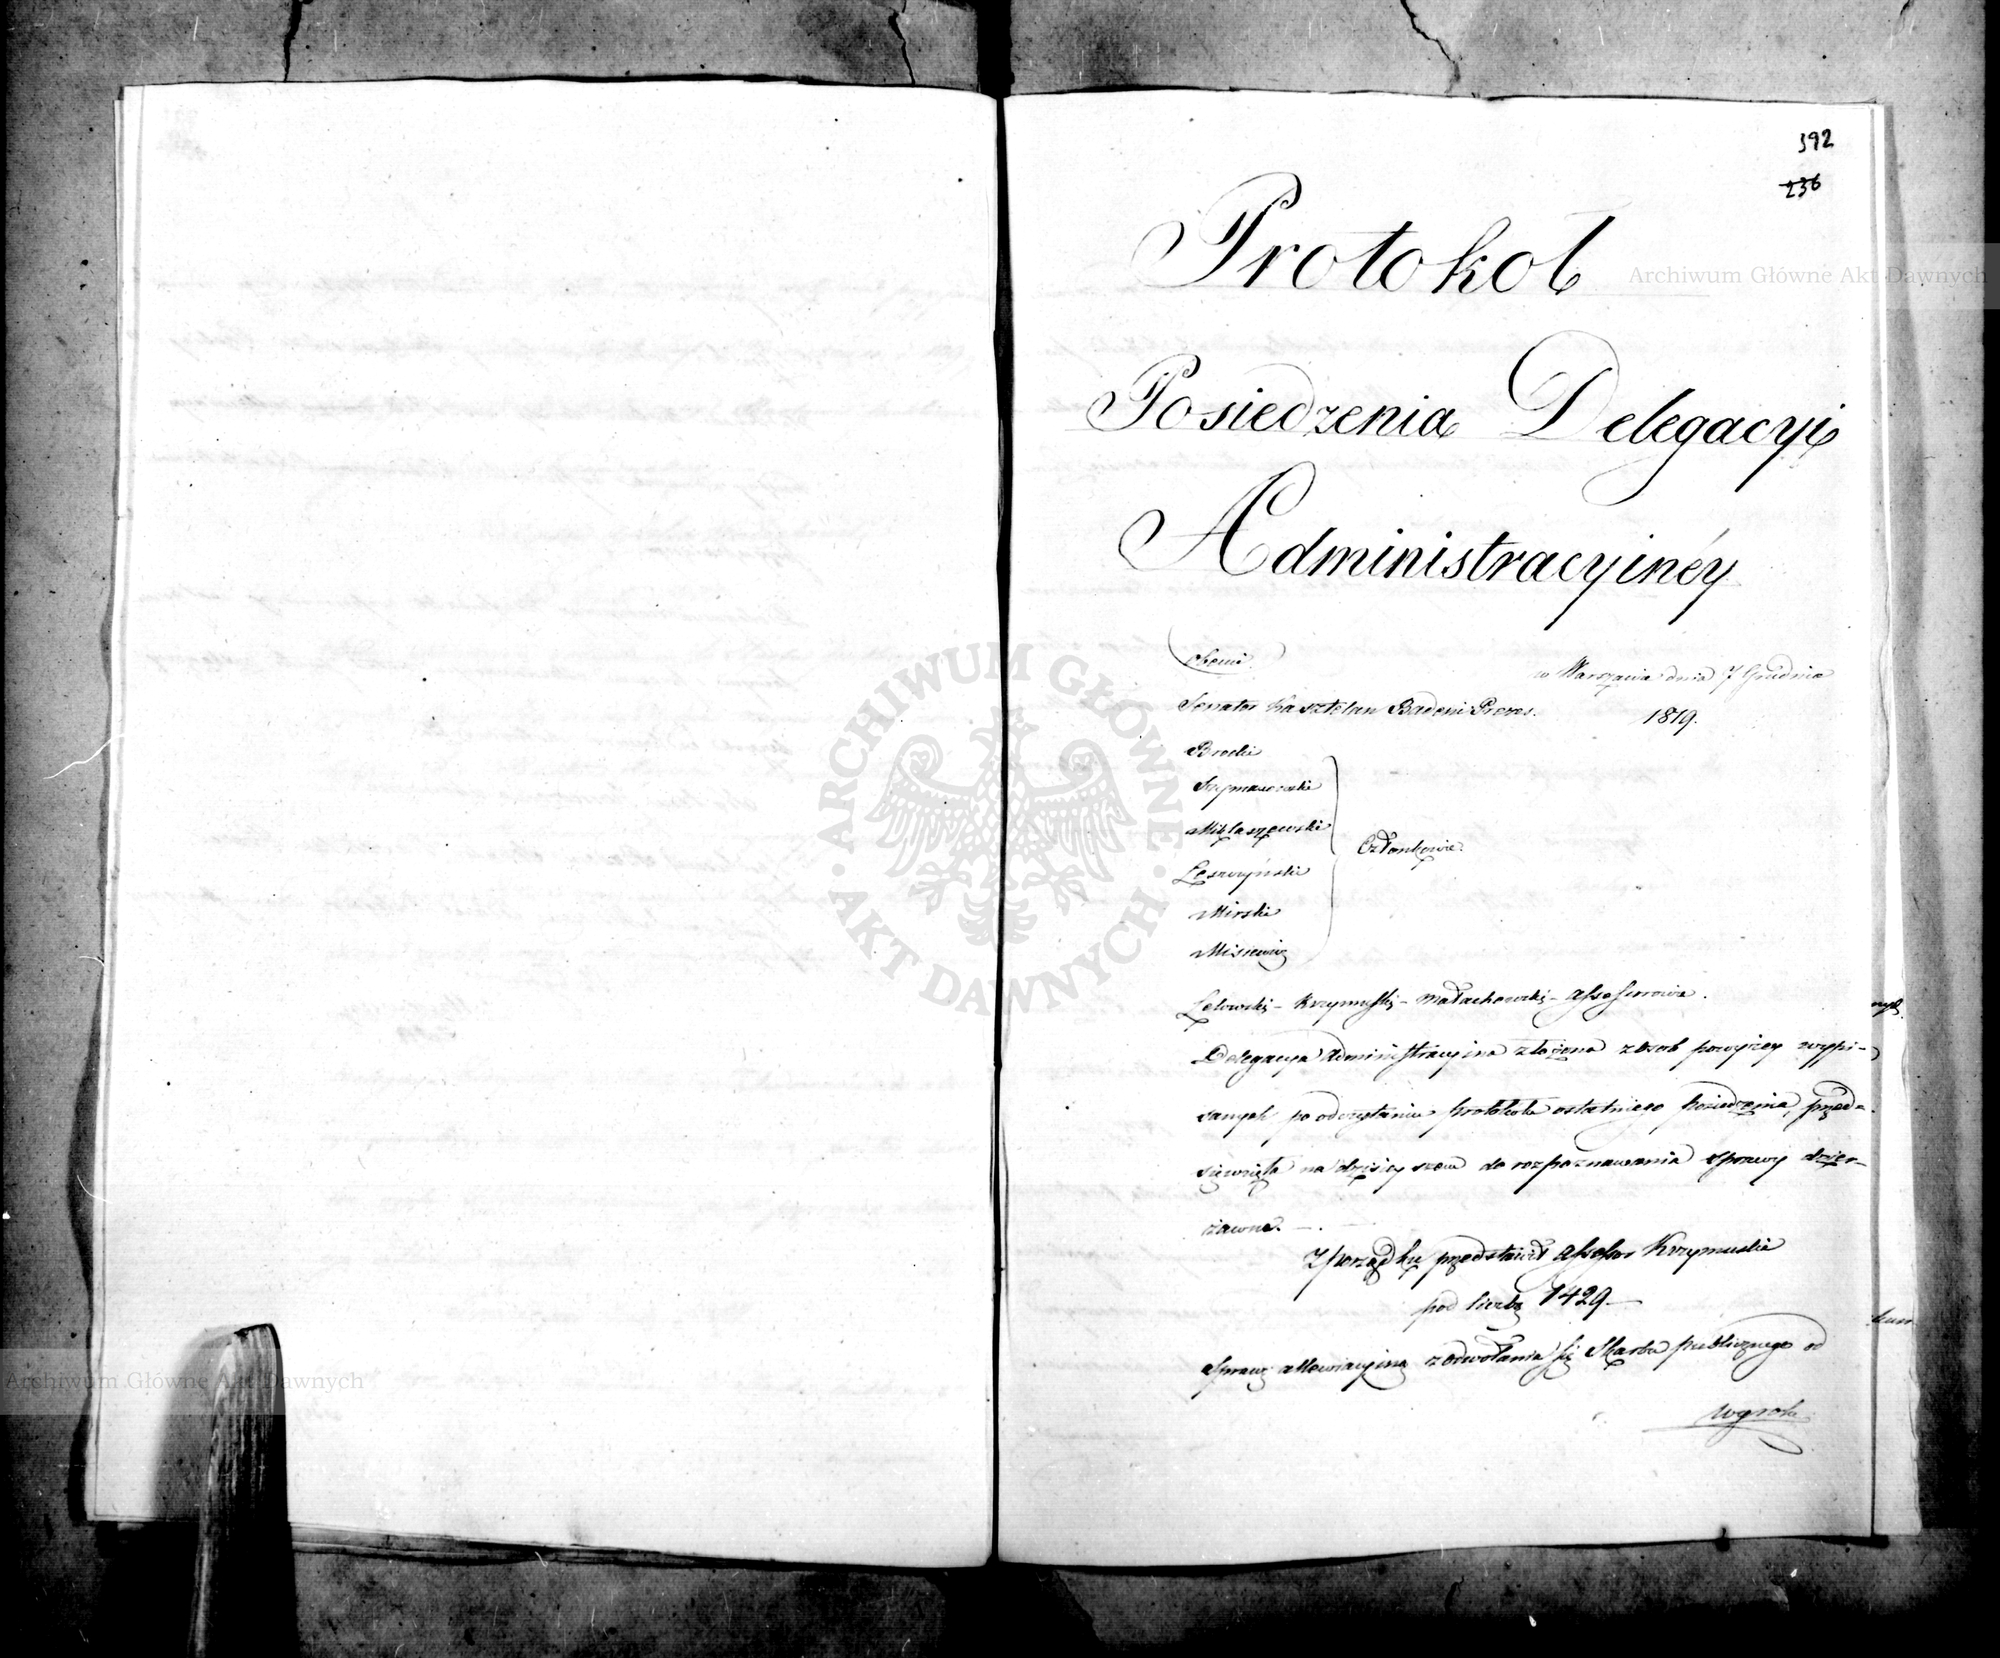 392
236
Protokoł
Posiedzenia Delegacyi
Administracyinéy
Obecni
w Warszawie dnia 7 Grudnia
Senator Kasztelan Badeni Prezes.
1819.
Brocki
Szymanowski
Miklaszewski
Członkowie.
Leszczyński
Mirski
Misiewicz
Lelowski – Krzymuski – Małachowski – Assessorowie.
Delegacya Administracyina złożona z osob powyżey wypi-
sanych po odczytaniu protokołu ostatniego posiedzenia, przed-
sięwzięła na dzisieyszem do rozpoznawania sprawy dzier-
żawne. —
Z porządku przedstawił Assessor Krzymuski
pod liczbą 1429. —
Sprawę allewiacyiną z odwołania się Skarbu publicznego od
Wyroku
Archiwum Główne Akt Dawnych
ARCHIWUM GŁÓWNE AKT DAWNYCH
Archiwum Główne Akt Dawnych